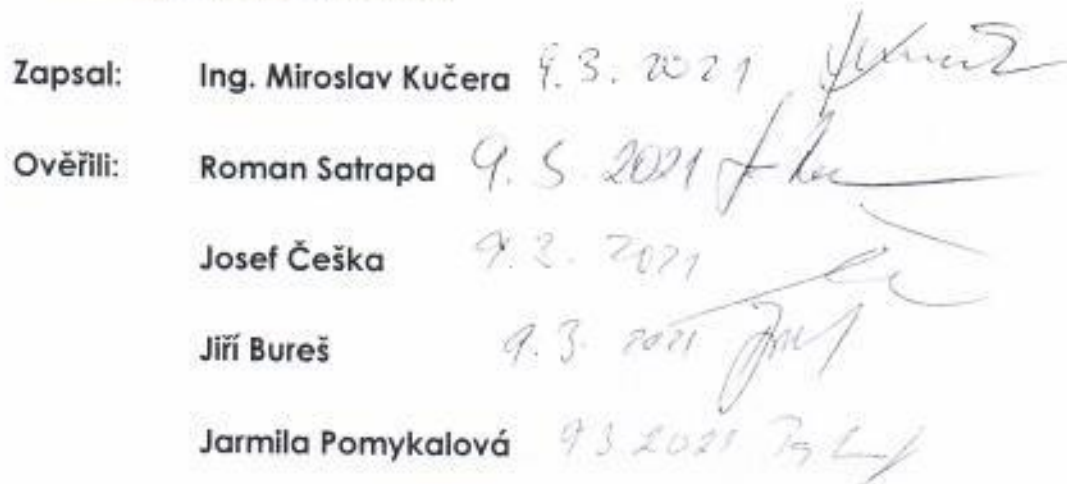 Zapsal: Ing. Miroslav Kučera 9. 3. 2021
Ověřili: Roman Satrapa 9. 3. 2021
Josef Češka 9. 3. 2021
Jiří Bureš 9. 3. 2021
Jarmila Pomykalová 9 3 2021